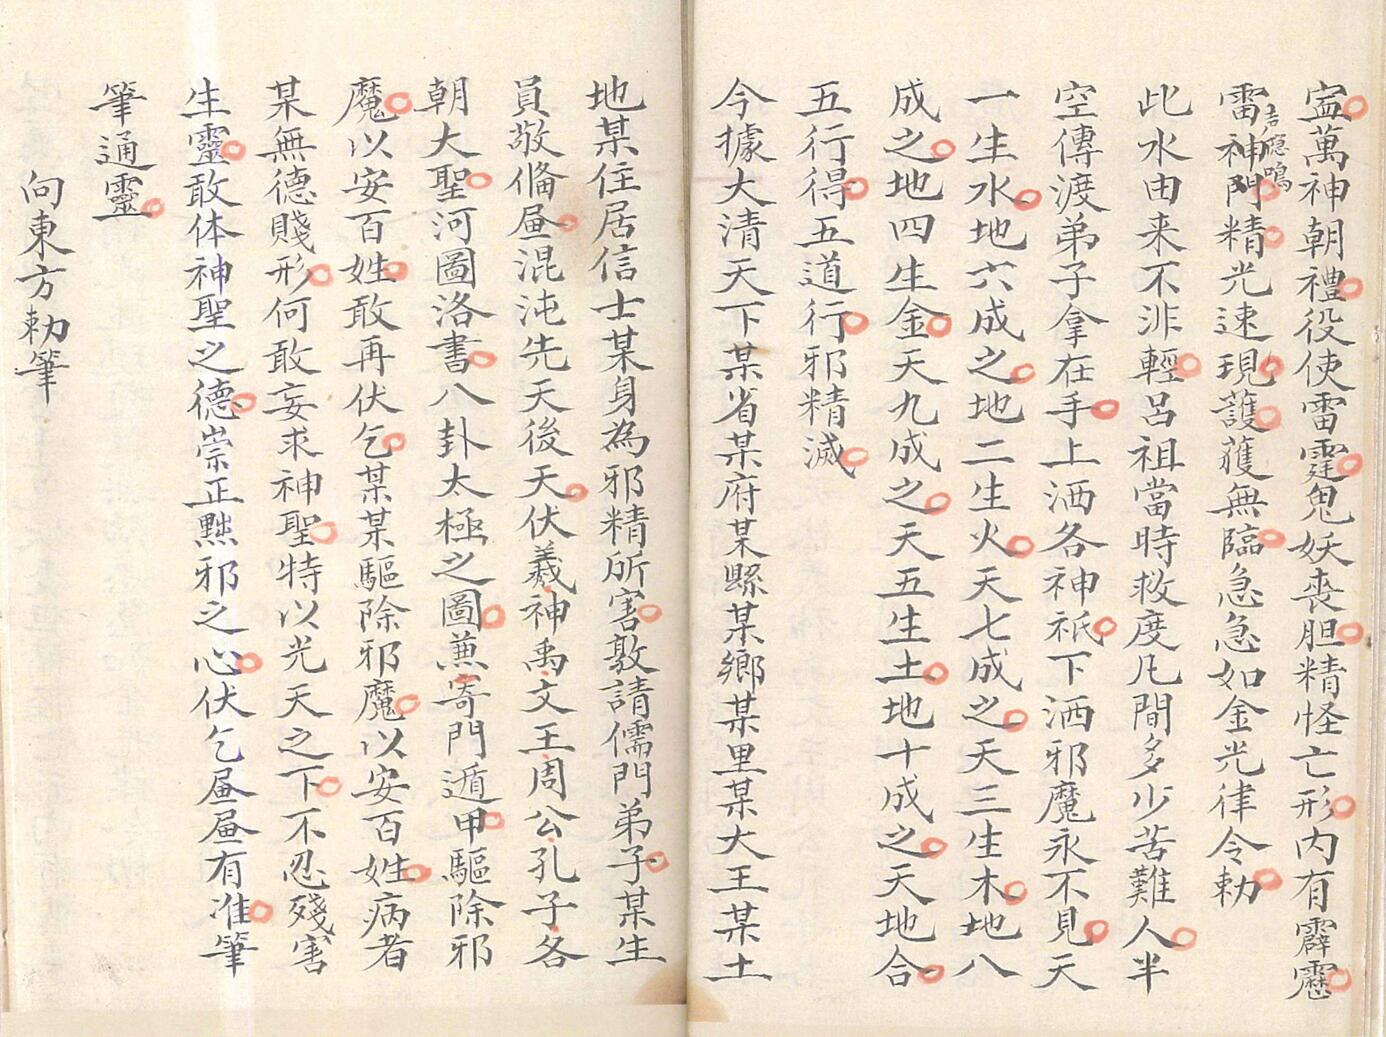 寍萬神朝禮役使雷霆鬼妖喪胆精怪亡形内有霹靂
雷神𨳝精光速現護蔰無臨急急如金光律令勅
吉 隠鳴
此水由来不淮輕呂祖當時救度凡間多少苦難人半
空傳渡弟子拿在手上洒各神祇下洒邪魔永不見天
一生水地六成之地二生火天七成之天三生木地八
成之地四生金天九成之天五生土地十成之天地合
五行得五道行邪精滅
今據大清天下某省某府某縣某鄉某里某大王某土
地某住居信士某身為邪精所害敦請儒門弟子某生
員敬俻昼混沌先天後天伏羲神禹文王周公孔子各
朝大聖河圖洛書八卦太極之圖蕙寄門遁甲驅除邪
魔以安百姓敢再伏乞某某驅除邪魔以安百姓病者
某無德賤形何敢妄求神聖特以光天之下不忍殘害
生靈敢体神聖之德崇正黙邪之心伏乞昼昼有准筆
筆通靈
向東方勅筆